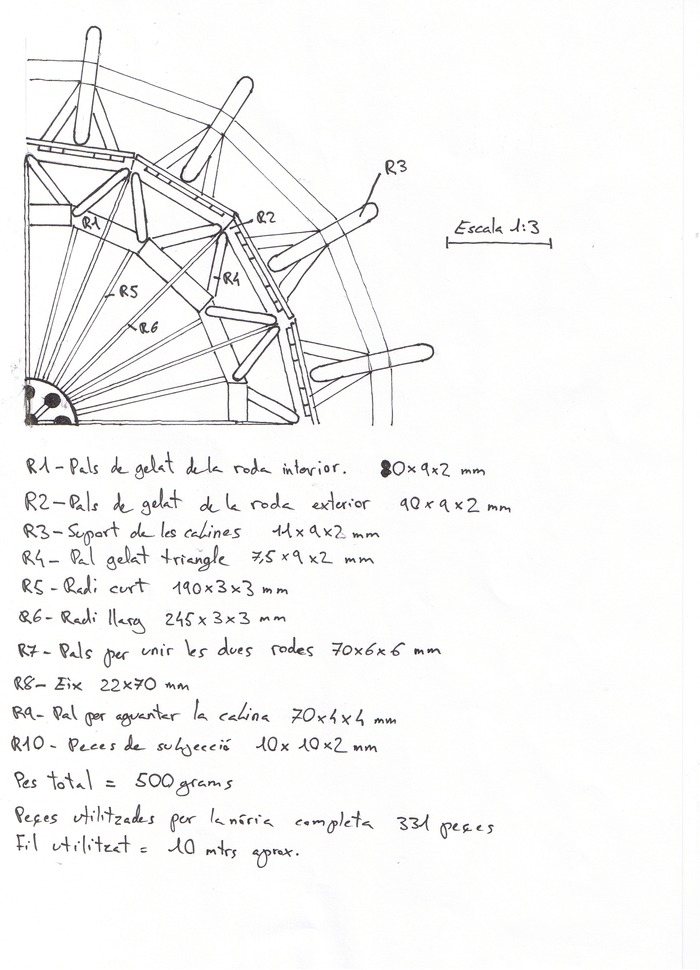 R3
Escala 1:3
R2
R1
R4
R5
R6
R1-Pals de gelat de la roda interior. 80x9x2 mm
R2-Pals de gelat de la roda exterior 90x9x2 mm
R3-Suport de les cabines 11x9x2 mm
R4- Pal gelat triangle 7,5x9x2 mm
R5- Radi curt 190x3x3 mm
R6- Radi llarg 245x3x3 mm
R7- Pals per unir les dues rodes 70x6x6 mm
R8- Eix 22x70 mm
R9- Pal per aguantar la cabina 70x4x4 mm
R10- Peces de subjecció 10x10x2 mm
Pes total = 500 grams
Peçes utilitzades per la nória completa 331 peçes
Fil utilitzat = 10 mtrs aprox.